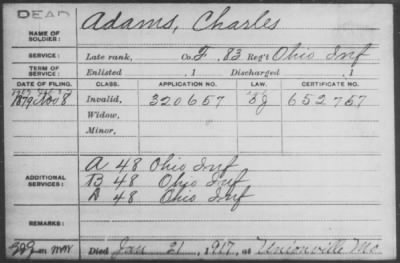 DEAD
NAME OF SOLDIER: Adams, Charles
SERVICE: Late rank, Co. F, 83 Reg't Ohio Inf
TERM OF SERVICE: Enlisted , 1 Discharged , 1
DATE OF FILING. CLASS. APPLICATION NO. LAW. CERTIFICATE NO.
1879 Nov 8 Invalid, 320657 652757
Widow,
Minor,
ADDITIONAL SERVICES:
A 48 Ohio Inf
B 48 Ohio Inf
D 48 Ohio Inf
REMARKS:
Died Jan 21, 1917, at Unionville Mo.